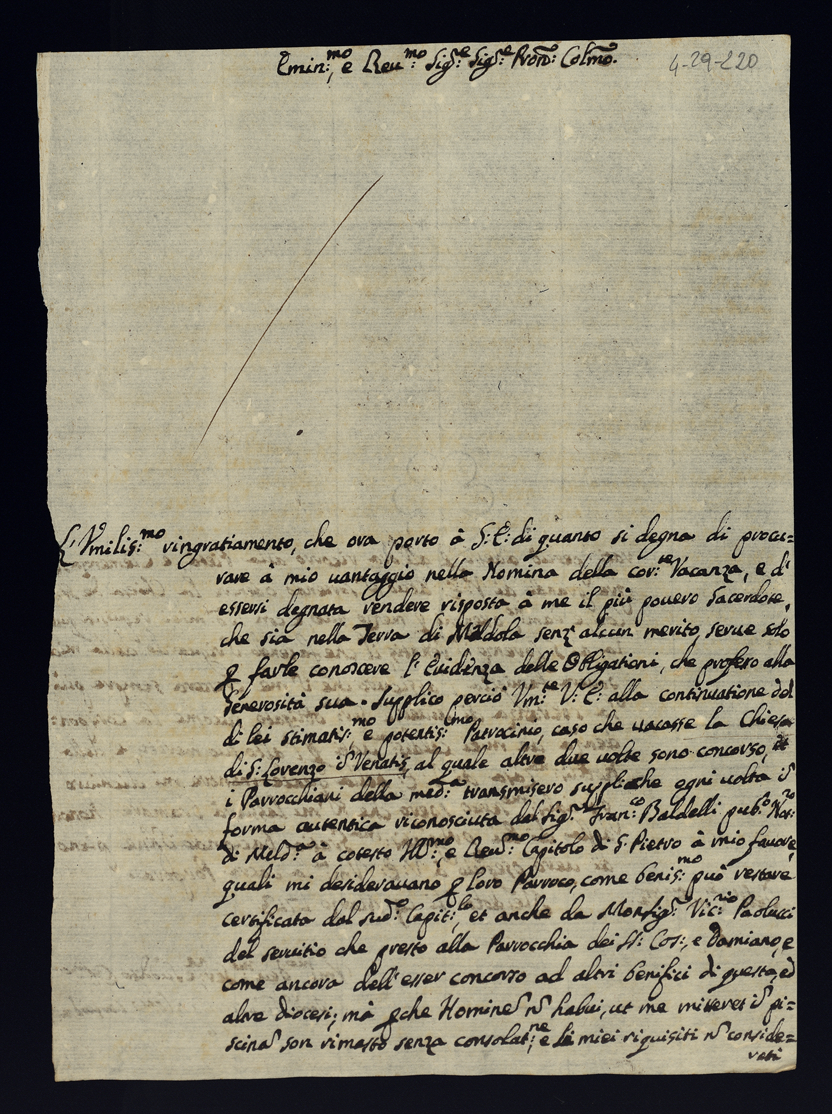 Emin:mo, e Reu:mo Sig:e Sig:e Pron: Colmo.
4-29-220
L'Vmilis:mo ringratiamento, che ora porto à S:E: di quanto si degna di procu=
rare à mio uantaggio nella Nomina della cor:te Vacanza, e d'
essersi degnata rendere risposta à me il più pouero Sacerdote,
che sia nella Terra di Meldola senz'alcun merito, serue solo
p farle conoscere l'Euidenza delle Obligationi, che professo alla
Generosità sua. Supplico perciò Vm:te V: E: alla continuatione del
di lei stimatis:mo e potentis:mo Patrocinio, caso che uacasse la Chiesa
di S: Lorenzo in Venatis, al quale altre due uolte sono concorso, et
i Parrocchiani della med:a transmisero suppliche ogni uolta in
forma autentica riconosciuta dal Sig:r Fran:co Baldelli pub:o Not:ro
di Meld:a à cotesto Ill:mo, e Reu:mo Capitolo di S: Pietro à mio fauore,
quali mi desiderauano p loro Parroco, come benis:mo può restare
certificata dal sud:o Capit:lo, et anche da Monsig:r Vic:rio Paolucci
del seruitio che presto alla Parrocchia dei SS: Cos:, e Damiano, e
come ancora dell'esser concorso ad altri benifici di questa, ed
altre diocesi; mà pche Hominem n habui, ut me mitteret in pi=
scinam son rimasto senza consolat:ne, e li miei riquisiti n conside=
rati